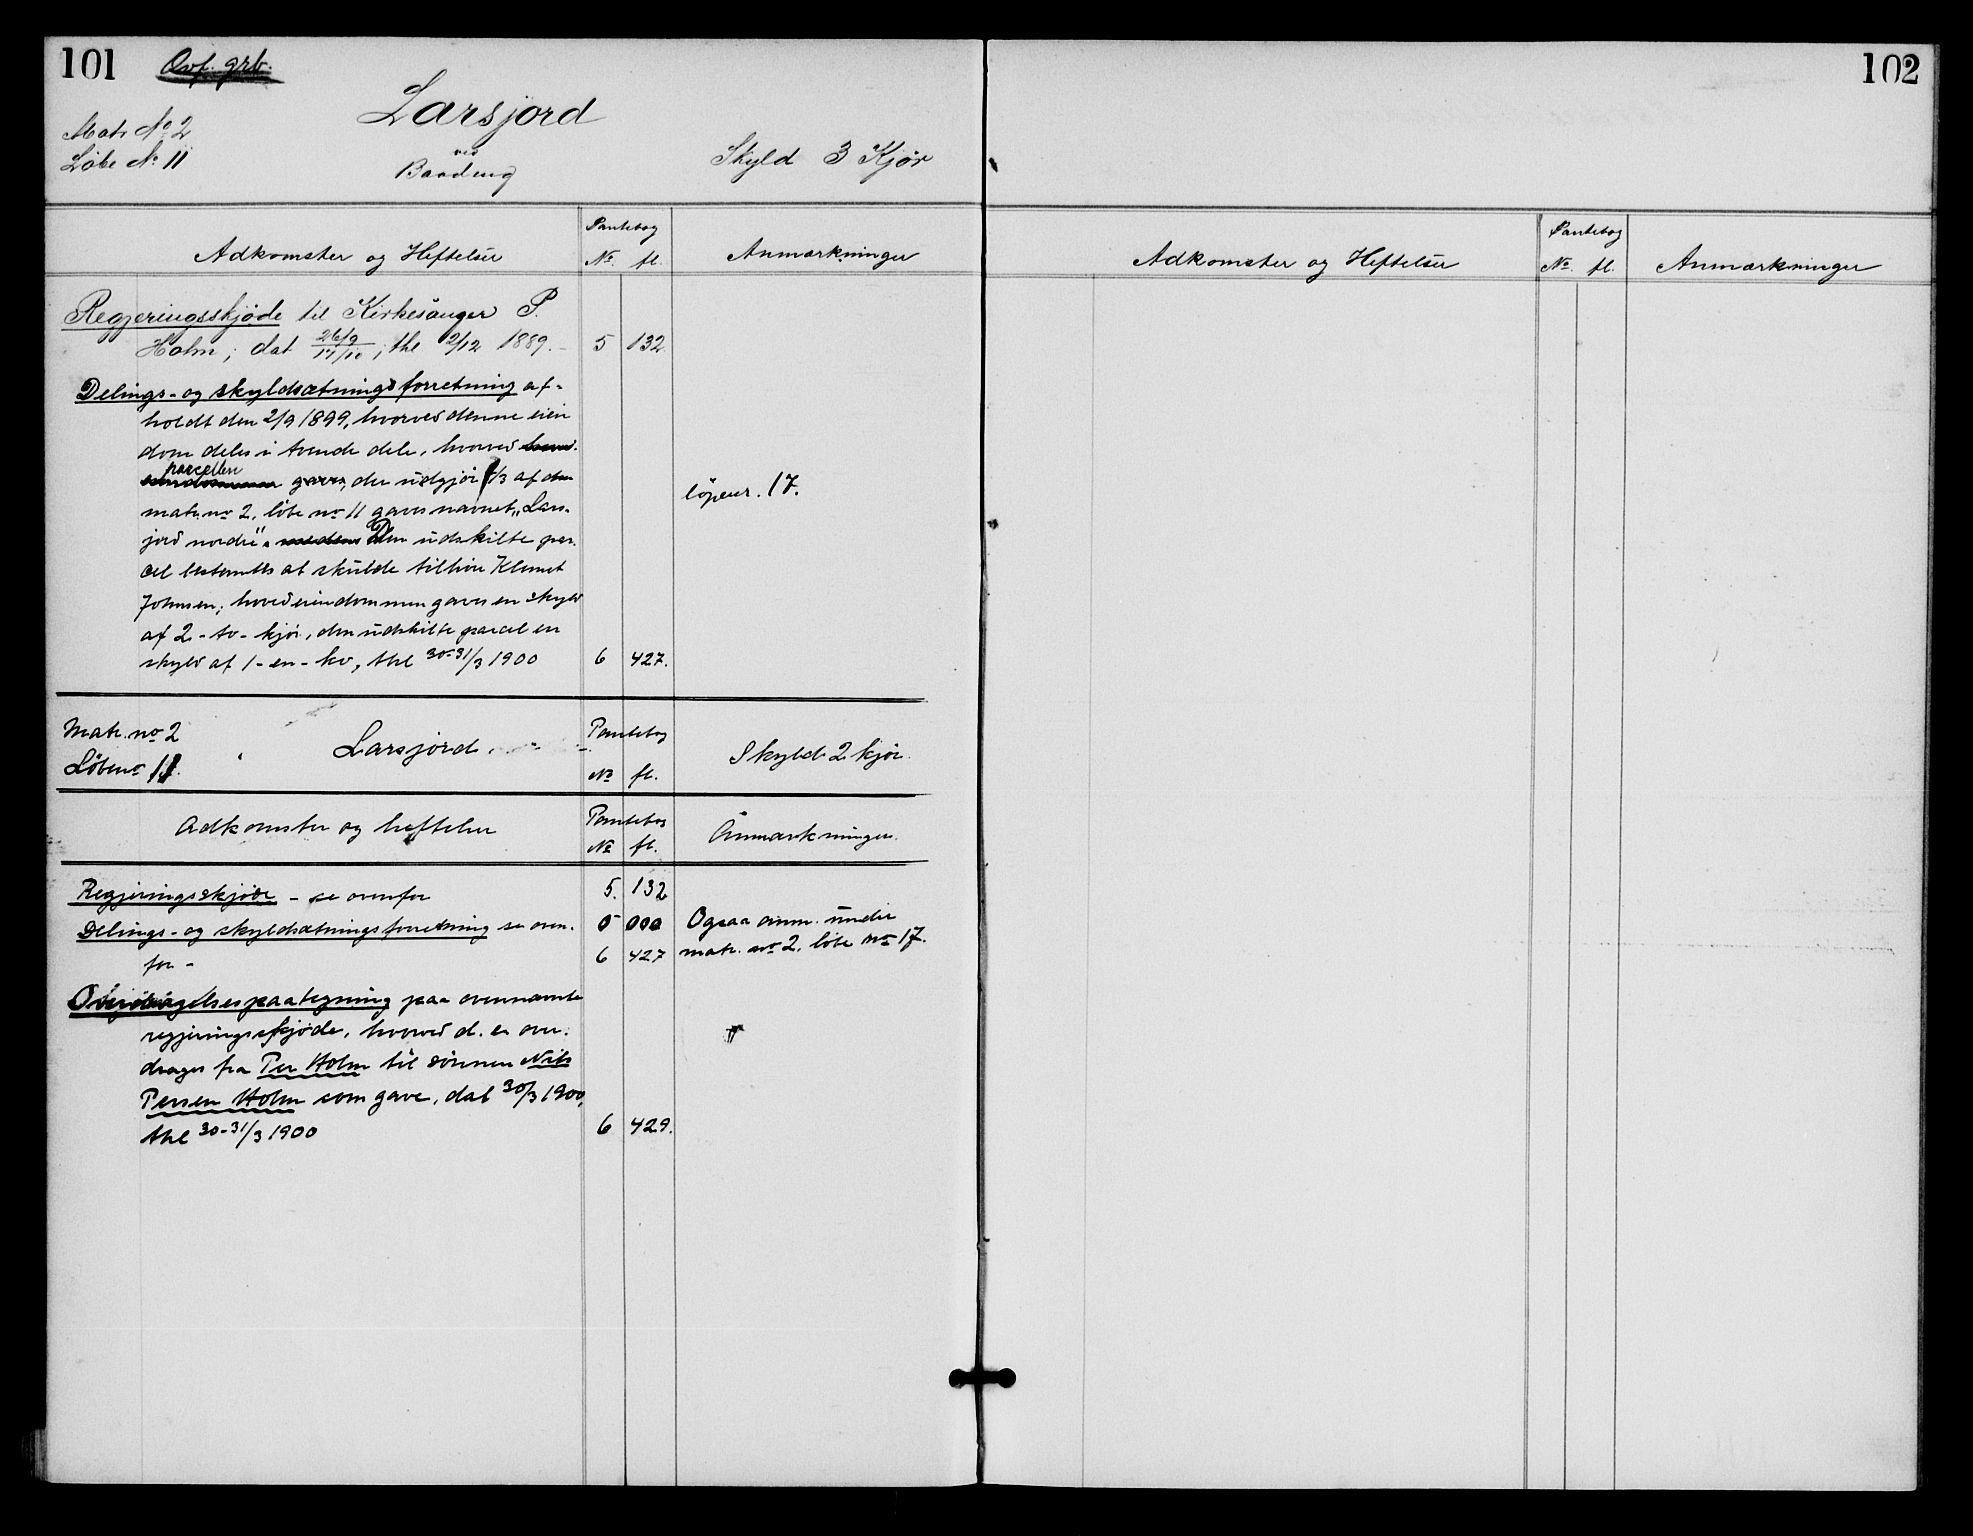 101
Ovf. grb.
Larsjord
Matr No 2
Løbe No 11
ved
Baadeng
Skyld 3 Kjør
Adkomster og Heftelser
Pantebog
No. fl.
Anmærkninger
Regjeringsskjøde til Kirkesånger P.
Holm; dat 26/9 17/10; thl 2/12 1889. 5 132
Delings- og skyldsætningsforretning af-
holdt den 2/9 1899, hvorved denne eien
dom deles i tvende dele, hvorved
parcellen
der udgjør 1/3 af den
løpenr. 17.
matr. no 2, løbe no 11 gaves navnet „Lars-
jord nordre". Den udskilte par-
cel bestemtes at skulde tilhøre Klemet
Johnsen; hovedeiendommen gaves en skyld
af 2 - to - kjør, den udskilte parcel en
skyld af 1 - en - ko, thl 30-31/3 1900 6 427.
Matr. no 2
Løbeno 11.
Larsjord.
Pantebog
No fl.
Skyld 2 kjør.
Adkomster og heftelser
Pantebog
No fl.
Anmærkninger.
Regjeringsskjøde - se ovenfor 5. 132
Delings- og skyldsætningsforretning se oven-
Ogsaa anm. under
for - 6 427
matr. no 2, løbe no 17.
Overdragelsespaategning paa ovennævnte
regjeringsskjøde, hvorved d. e. over-
drages fra Per Holm til sønnen Nils
Persen Holm som gave, dat 30/3 1900,
thl 30-31/3 1900 6 429.
102
Adkomster og Heftelser
Pantebog
No. fl.
Anmærkninger